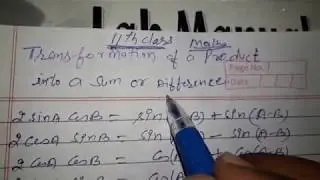 Lab Manual
11th class Maths
Transformation of a Product
into a sum or Difference
Page No.
Date
2 sinA CosB = sin(A+B) + sin(A-B)
2 cosA SinB = sin( +B) - Sin(A-B)
2 CosA CosB = Cos( B) + Cos(A-B)